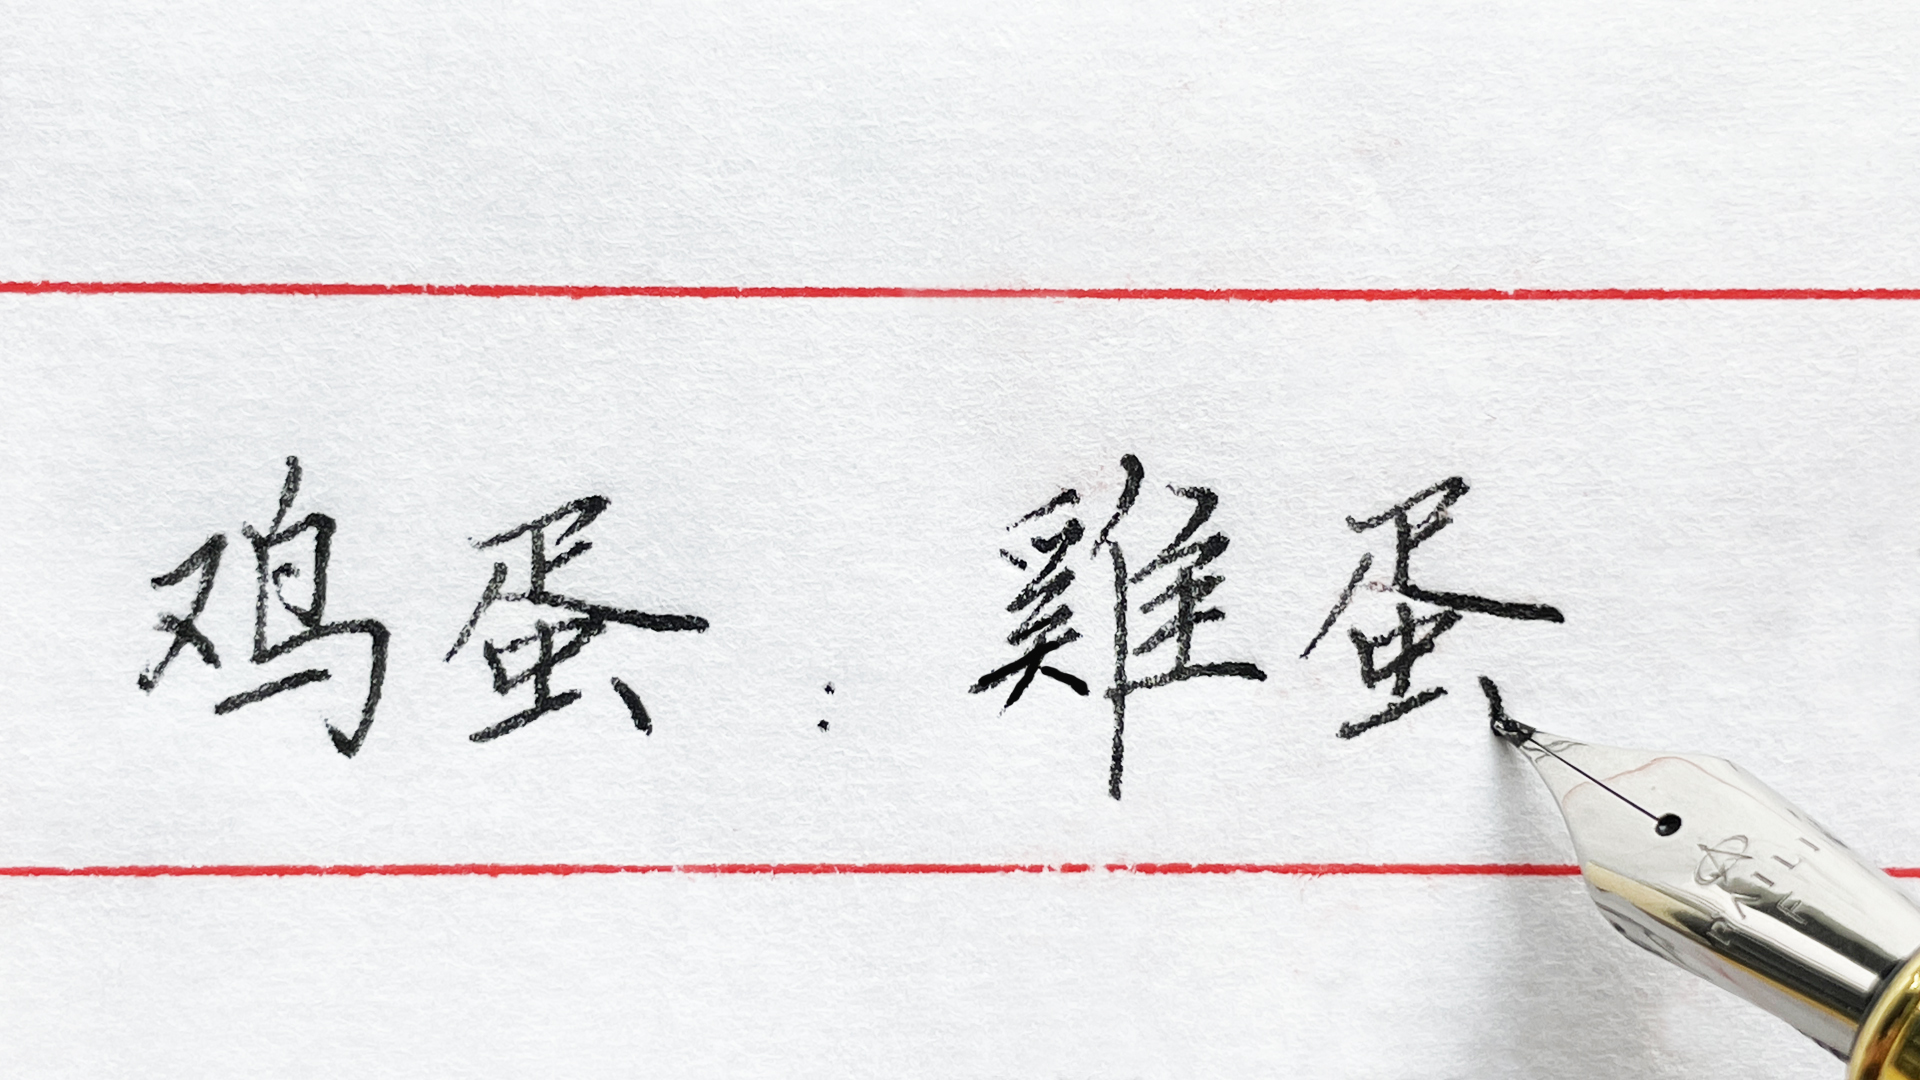 鸡蛋：雞蛋